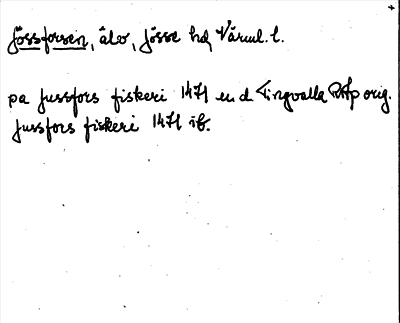 Jössforsen, älv, Jösse hd, Värml. l.
pa Jussfors fiskeri 1471 Tingvalla RAp orig.
Jussfors fiskeri 1471 ib.